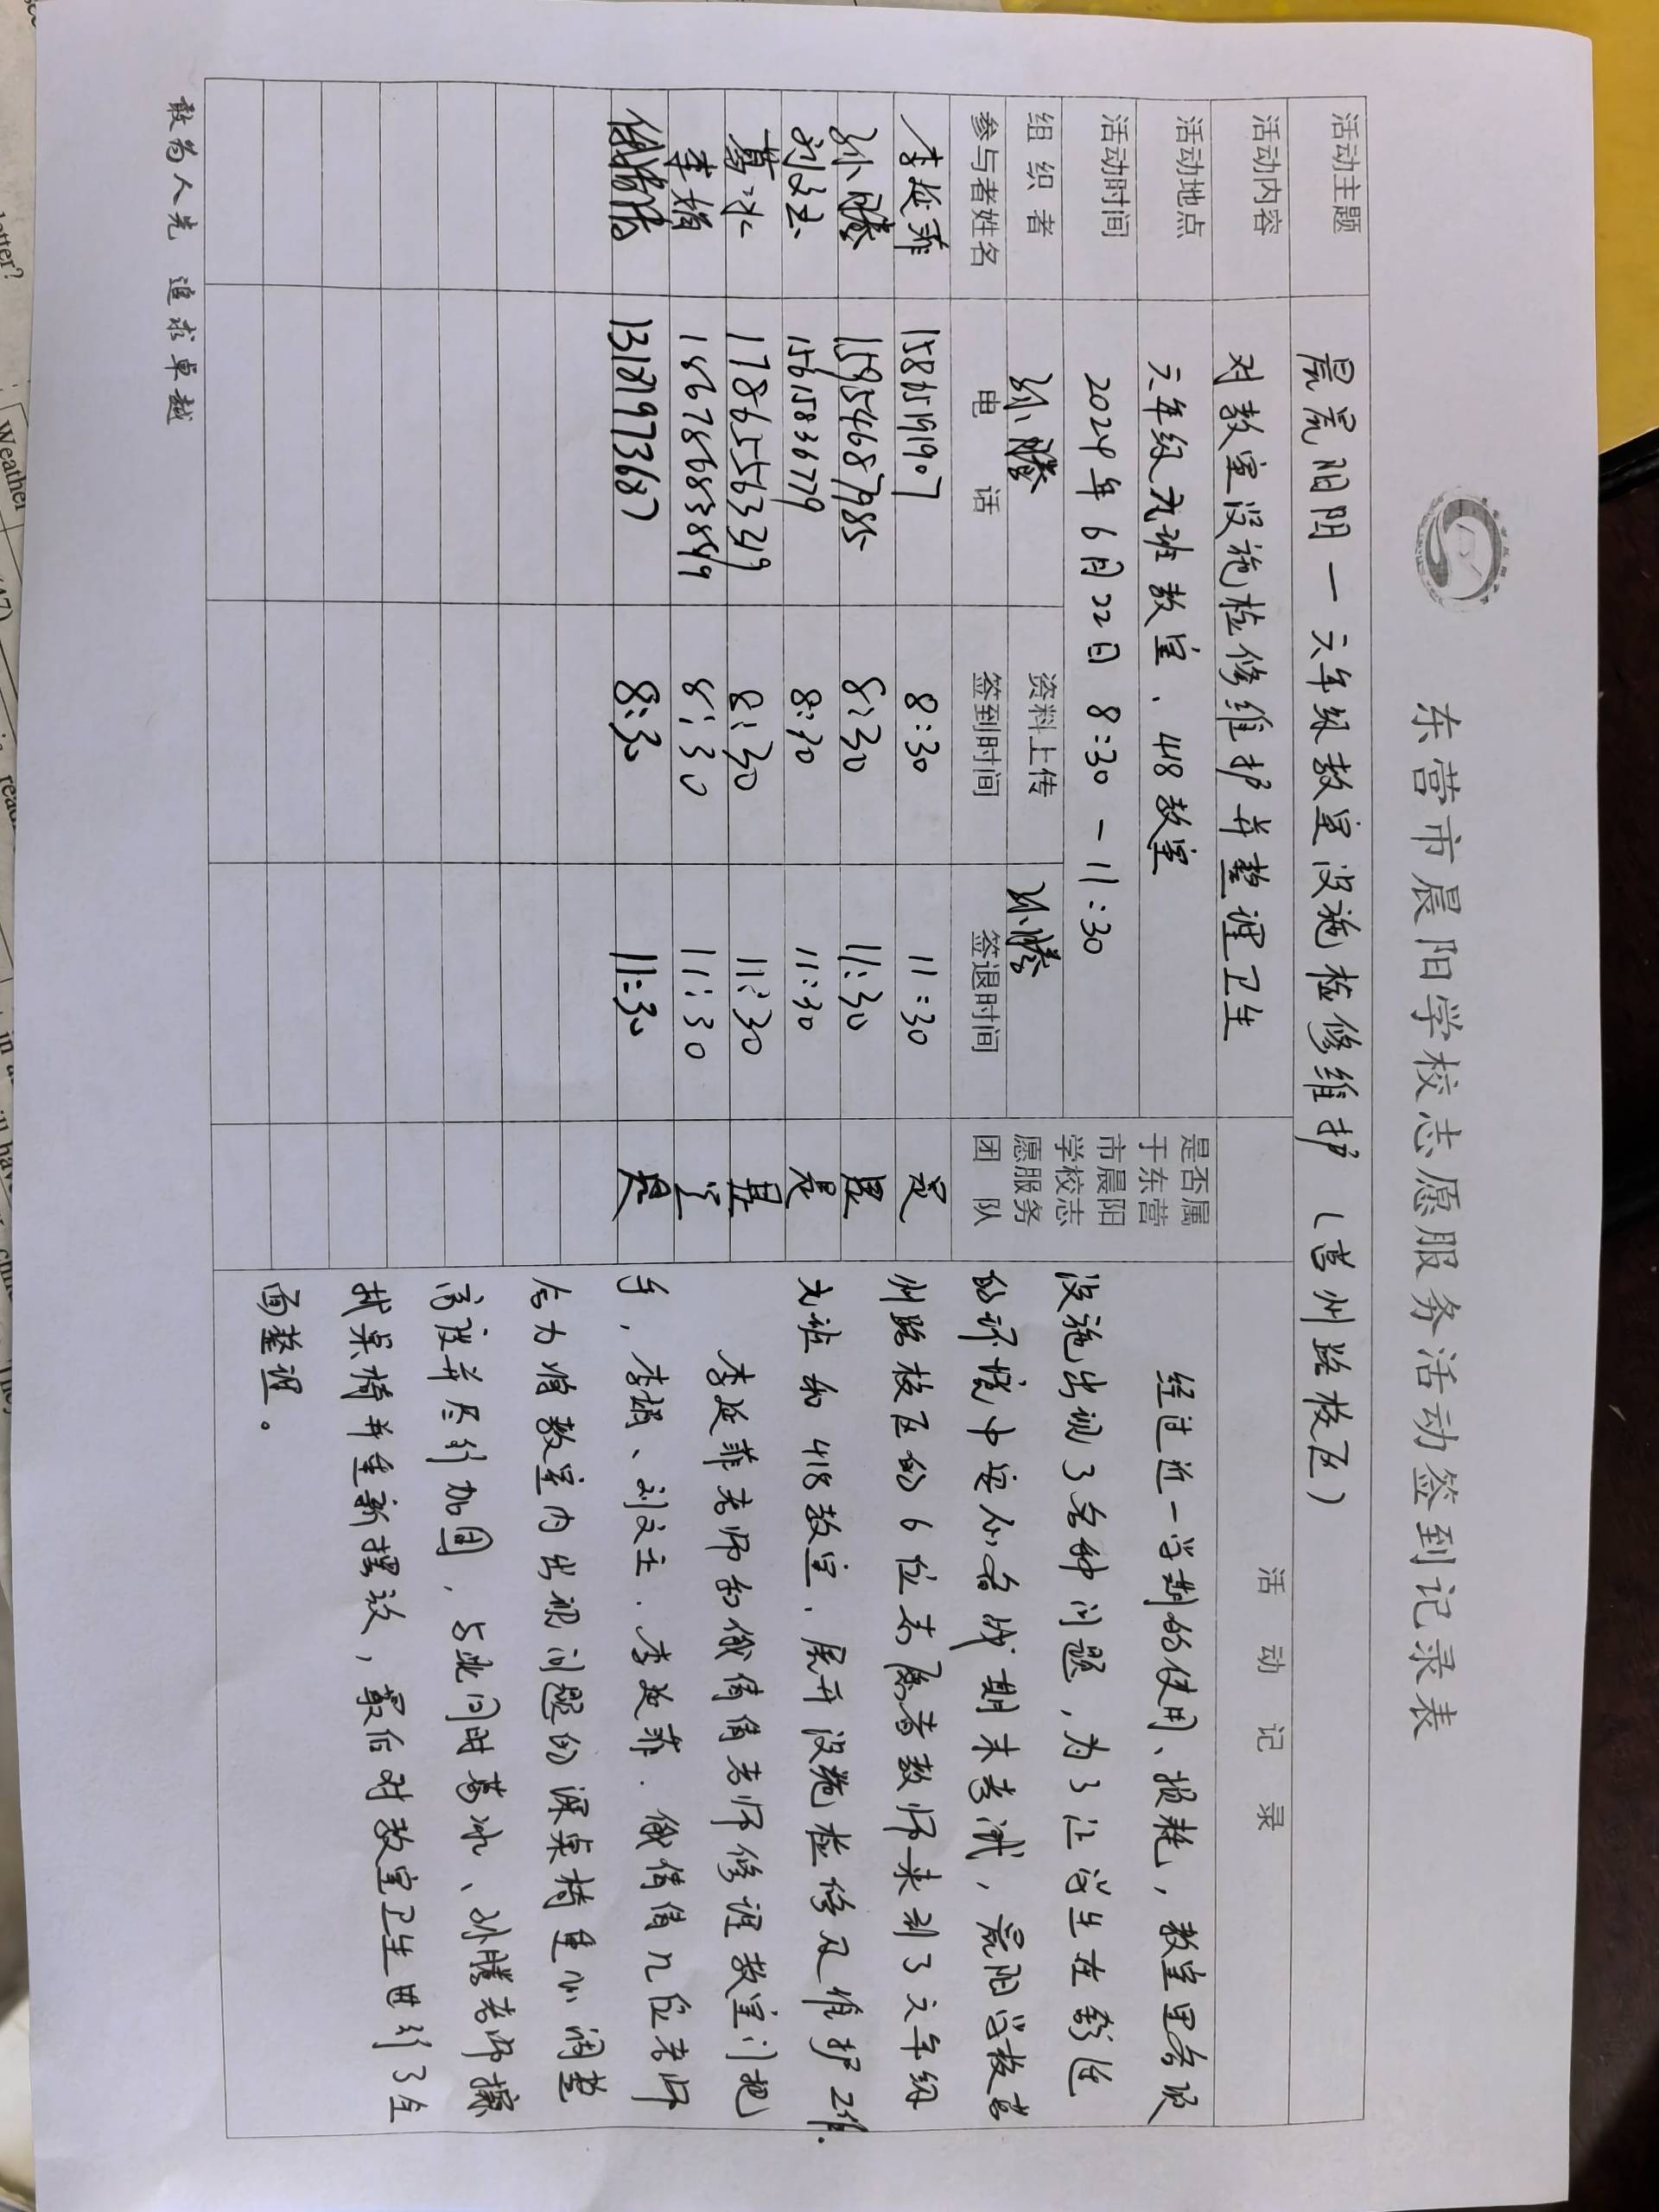 东营市晨阳学校志愿服务活动签到记录表
活动主题 晨晨阳阳一六年级教室设施检修维护(莒州路校区)
活动内容 对教室设施检修维护并整理卫生
活动地点 六年级九班教室、418教室
活动时间 2024年6月22日 8:30-11:30
组织者 孙腾 资料上传 孙腾
是否属于东营市晨阳学校志愿服务团队
参与者姓名 电话 签到时间 签退时间
李延菲 15865191907 8:30 11:30 是
孙腾 15954687985 8:30 11:30 是
刘文主 15615836779 8:30 11:30 是
葛冰 17865556339 8:30 11:30 是
李娟 18678683849 8:30 11:30 是
俄倩倩 13181973687 8:30 11:30 是
活动记录
经过近一学期的使用、损耗,教室里各项
设施出现了各种问题,为了让学生在舒适
的环境中安心备战期末考试,晨阳学校莒
州路校区的6位志愿者教师来到了六年级
九班和418教室,展开设施检修及维护工作.
李延菲老师和俄倩倩老师修理教室门把
手,李娟、刘文主、李延菲、俄倩倩几位老师
合力将教室内出现问题的课桌椅重新调整
高度并尽行加固,与此同时葛冰、孙腾老师擦
拭桌椅并重新摆放,最后对教室卫生进行了全
面整理。
敢为人先 追求卓越
Weather